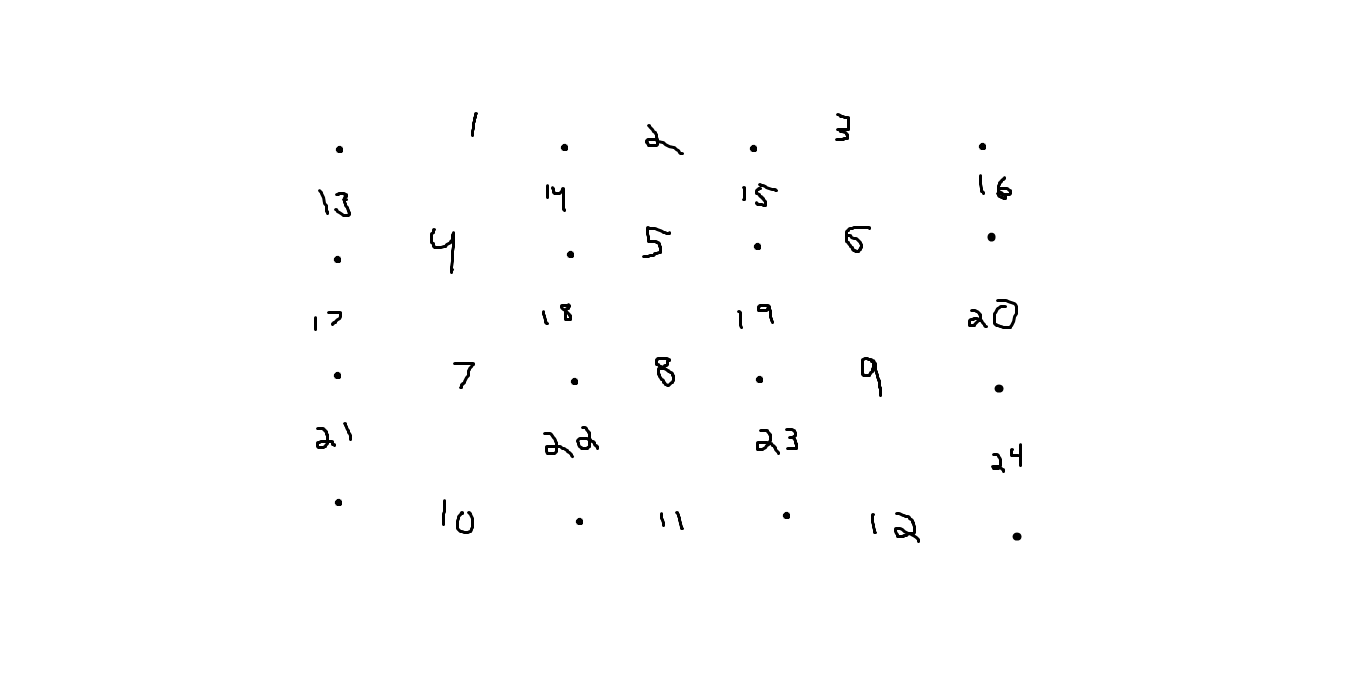 1 2 3
13 14 15 16
4 5 6
17 18 19 20
7 8 9
21 22 23 24
10 11 12